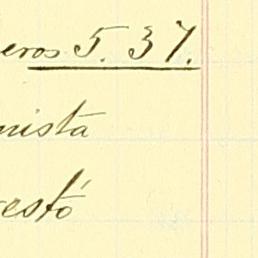 eros 5. 37.
nista
restó